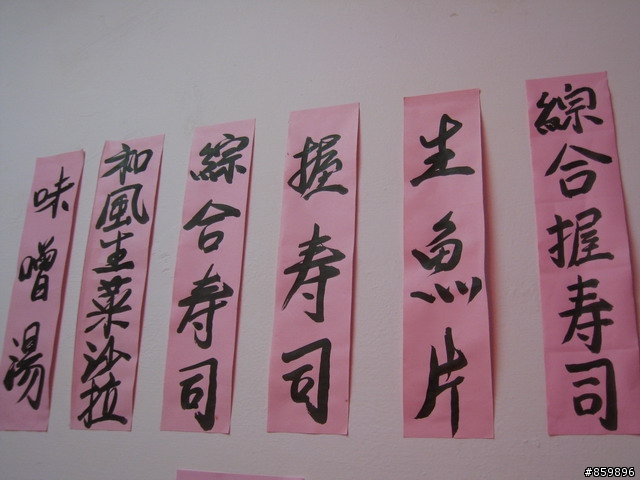 綜合握寿司
生魚片
握寿司
綜合寿司
和風生菜沙拉
味噌湯
#859896